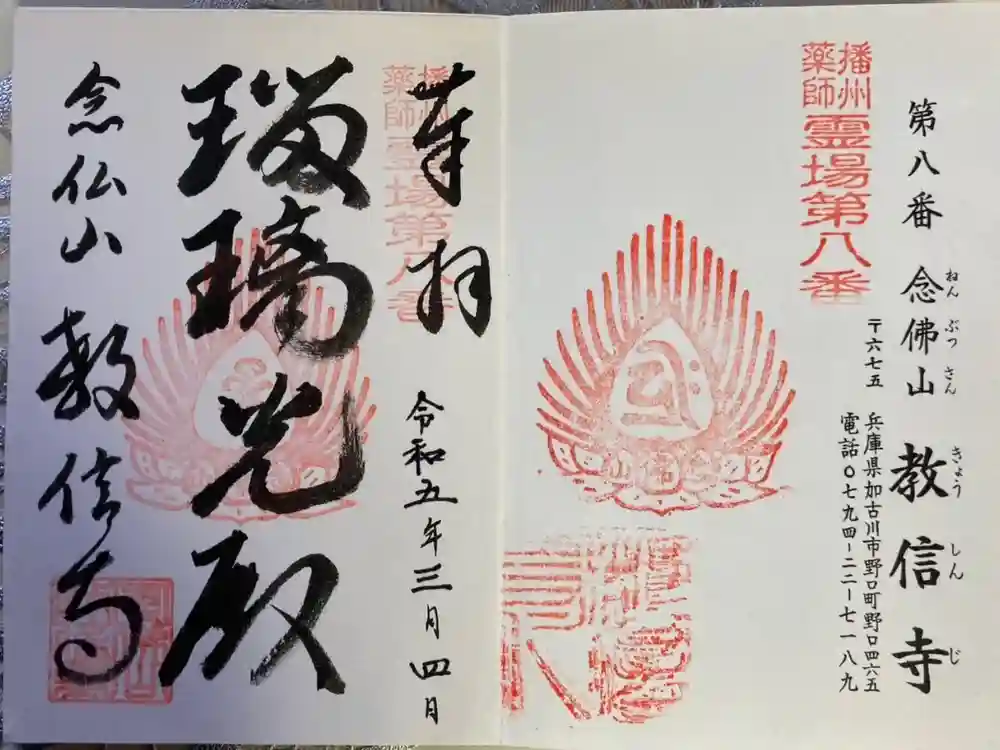 第八番 念佛山 教信寺
ねんぶつさん きょうしんじ
〒六七五 兵庫県加古川市野口町野口四六五
電話〇七九四-二二-七一八九
播州
薬師
霊場第八番
奉拝
令和五年三月四日
播州
薬師
霊場第八番
瑠璃光殿
念仏山 教信寺